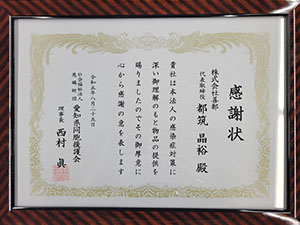 感謝状
株式会社喜部
代表取締役 都筑晶裕 殿
貴社は本法人の感染症対策に
深い御理解のもと物品の提供を
賜りましたのでその御厚意に
心から感謝の意を表します
令和五年八月二十五日
社会福祉法人 恩賜財団
愛知県同胞援護会
理事長 西村眞